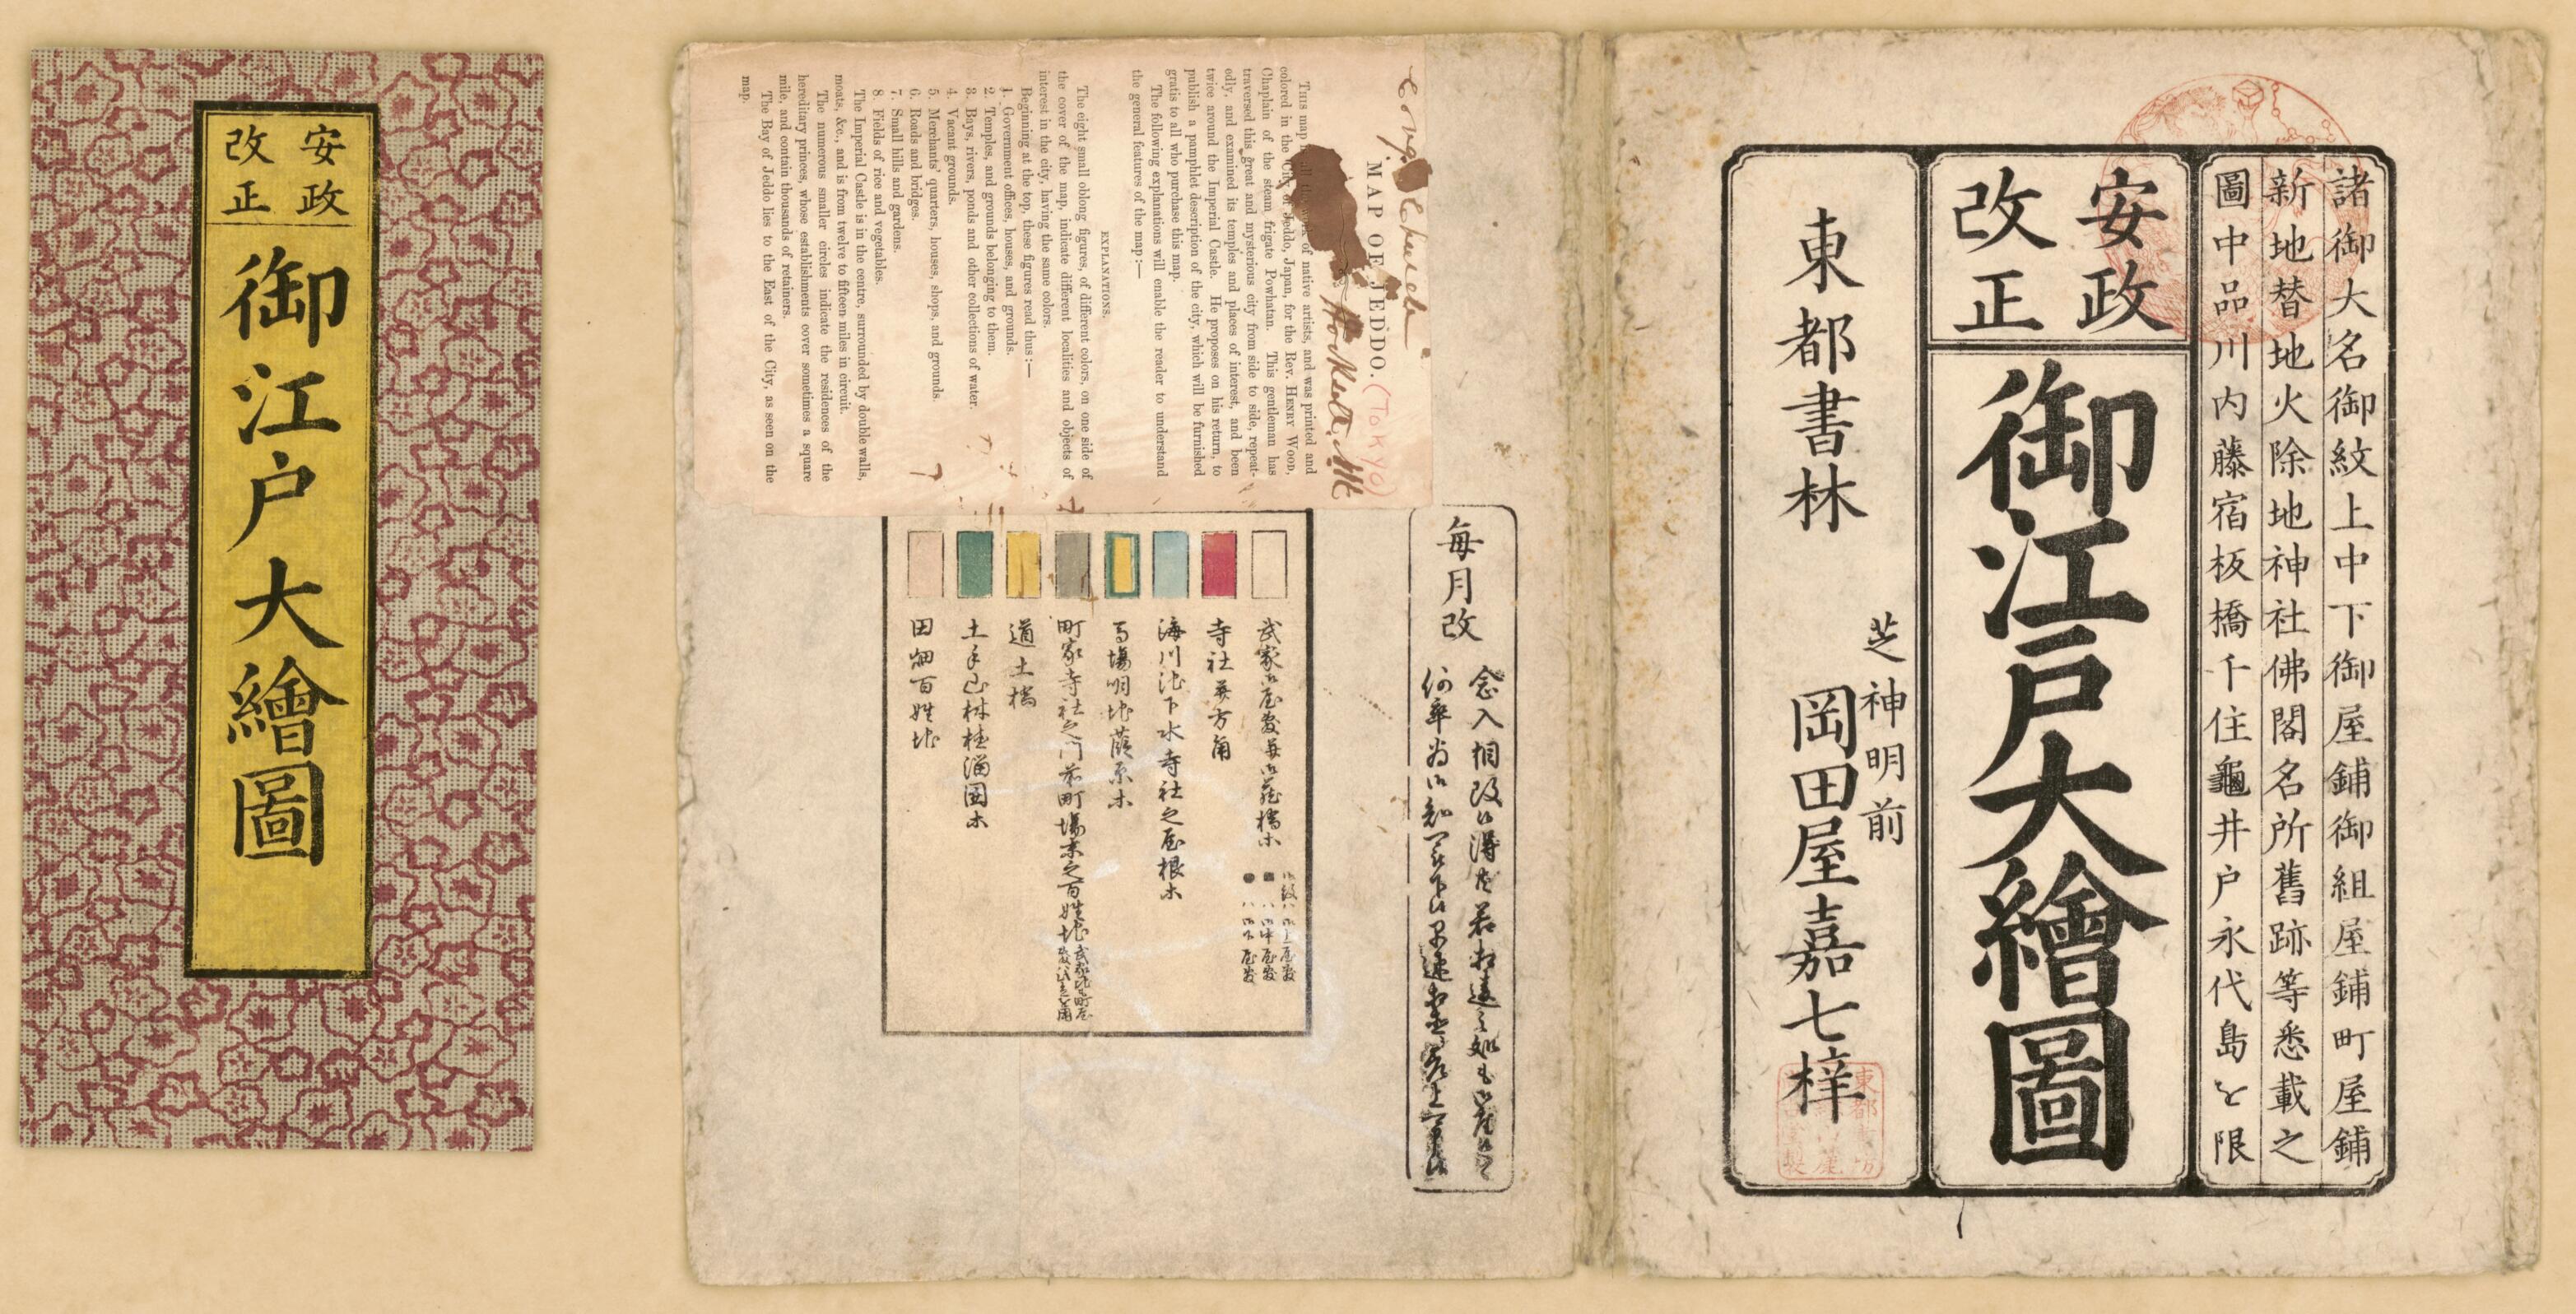 安政
改正
御江戸大繪圖
Congl Church
MAP OF JEDDO. (Tokyo)
This map is all the work of native artists, and was printed and
colored in the City of Jeddo, Japan, for the Rev. Henry Wood,
Chaplain of the steam frigate Powhatan. This gentleman has
traversed this great and mysterious city from side to side, repeat-
edly, and examined its temples and places of interest, and been
twice around the Imperial Castle. He proposes on his return, to
publish a pamphlet description of the city, which will be furnished
gratis to all who purchase this map.
The following explanations will enable the reader to understand
the general features of the map:—
EXPLANATIONS.
The eight small oblong figures, of different colors, on one side of
the cover of the map, indicate different localities and objects of
interest in the city, having the same colors.
Beginning at the top, these figures read thus:—
1. Government offices, houses, and grounds.
2. Temples, and grounds belonging to them.
3. Bays, rivers, ponds and other collections of water.
4. Vacant grounds.
5. Merchants' quarters, houses, shops, and grounds.
6. Roads and bridges.
7. Small hills and gardens.
8. Fields of rice and vegetables.
The Imperial Castle is in the centre, surrounded by double walls,
moats, &c., and is from twelve to fifteen miles in circuit.
The numerous smaller circles indicate the residences of the
hereditary princes, whose establishments cover sometimes a square
mile, and contain thousands of retainers.
The Bay of Jeddo lies to the East of the City, as seen on the
map.
毎月改
武家御屋敷
寺社并方角
海川池下水寺社之屋根木
馬場明地
町家寺社之門前町場末之百姓地
道土橋
土手山林
田畑百姓地
諸御大名御紋上中下御屋鋪御組屋鋪町屋鋪
新地替地火除地神社佛閣名所舊跡等悉載之
圖中品川内藤宿板橋千住龜井戸永代島を限
安政
改正
御江戸大繪圖
東都書林
芝神明前
岡田屋嘉七梓